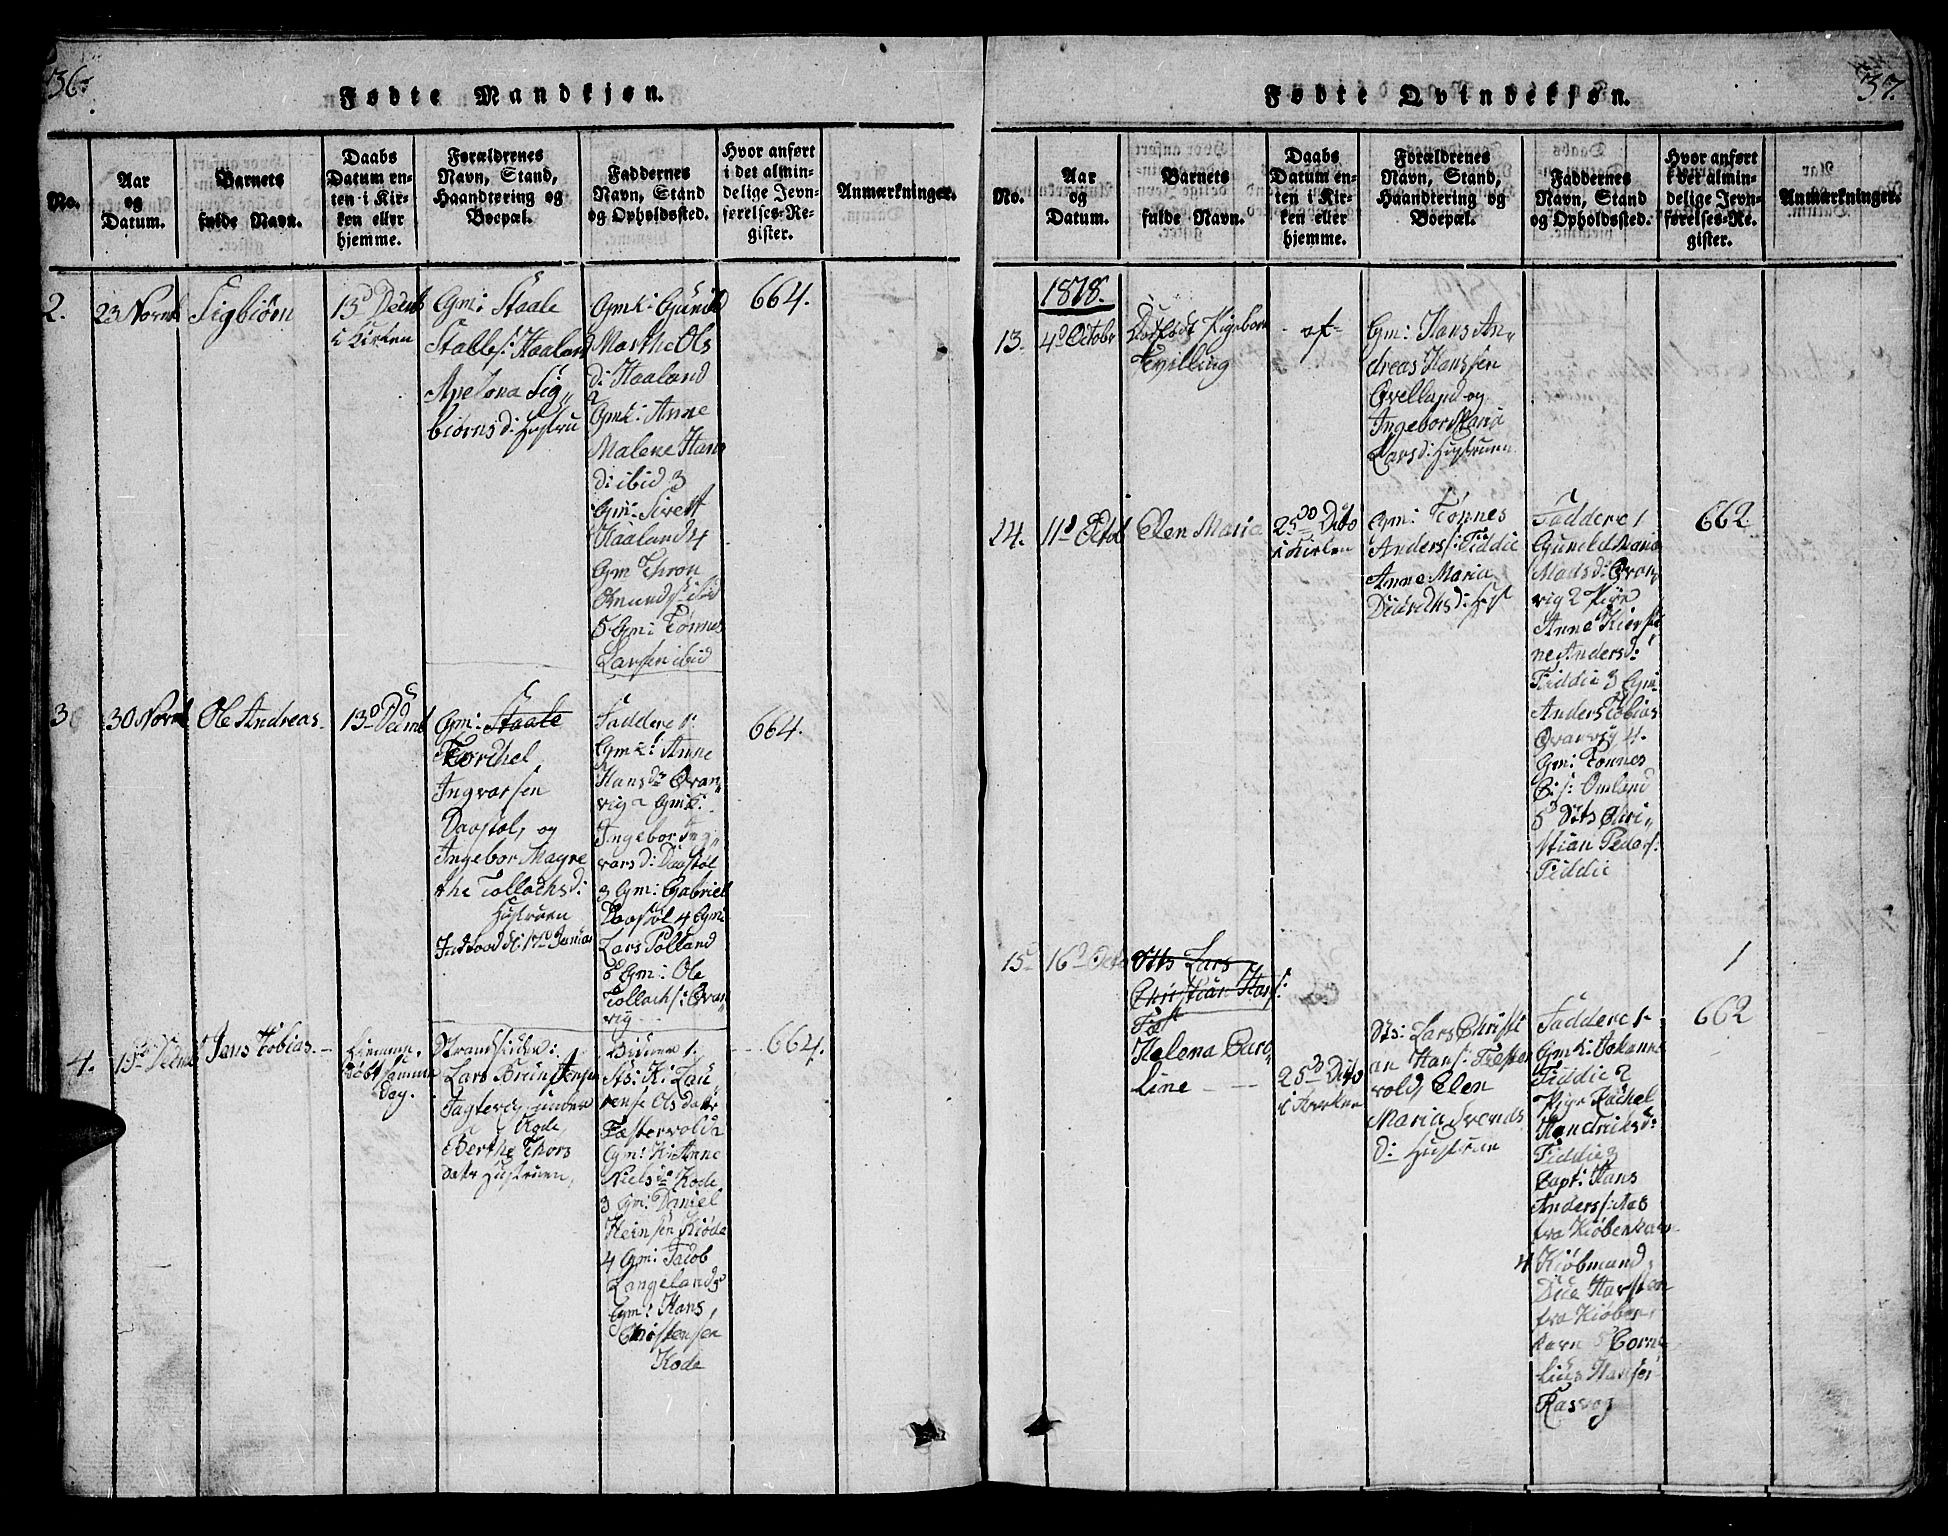 36.
Fødte Mandkjøn.
No.
Aar
og
Datum.
Barnets
fulde Navn.
Daabs
Datum en-
ten i Kir-
ken eller
hjemme.
Forældrenes
Navn, Stand,
Haandtering og
Boepæl.
Faddernes
Navn, Stand
og Opholdssted.
Hvor anført
i det almin-
delige Jevn-
førelses-Re-
gister.
Anmærkninger.
2.
23 Novmb
Sigbiørn
13d Decmb
i Kirken
Gm: Staale
Stalles: Haaland
Apelona Sig„
biørnsd: Hustru
Gmk: Gunild
Marthe Ols
d: Haaland
2
Gmk: Anne
Malene Hans
d: ibid 3
Gm: Sivert
Haaland 4
Gm Thron
Omunds: ibid
5 Gm: Tønnes
Larsen ibid
664.
3
30 Novmb
Ole Andreas.
13d Decmb
Gm: Staale
Torchel
Ingvarsen
Daastøl, og
Ingebor Magre
the Tollachsd:
Hustruen
17d Januar
Faddere 1.
Gmk: Anne
Hansdr Qvan„
vig 2 Gmk:
Ingebor Ing„
varsd: Daastøl
3 Gm: Gabriel
Daastøl 4 Gm:
Lars Polland
5 Gm: Ole
Tollachs: Qvan„
vig
664.
4.
15d Decmb
Jans Tobias.
hiemme
døbt samme
Dag.
Strandsidder:
Lars Brun Jensen
under
Kode,
Berthe Thors
datr Hustruen,
1.
K: Lau„
rense Olsdatr
Fæstervold 2
Gm: K: Anne
Nielsdr Kode
3 Gm: Daniel
Heinsen Kiøde
4 Gm: Jacob
Langeland 5
Gm: Hans,
Christensen
Kode
664.
37.
Fødte Qvindekjøn.
No.
Aar
og
Datum.
Barnets
fulde Navn.
Daabs
Datum en-
ten i Kir-
ken eller
hjemme.
Forældrenes
Navn, Stand,
Haandtering og
Boepæl.
Faddernes
Navn, Stand
og Opholdssted.
Hvor anført
i det almin-
delige Jevn-
førelses-Re-
gister.
Anmærkninger.
1818.
13.
4d Octobr
Dødfødt Pigebarn
Tvilling
af
Gm: Hans An„
dreas Hanssen
Qvelland og
Ingebor Maria
Larsd: Hustruen
14.
11d Octob
Elen Maria
25de Dito
i Kirken
Gm: Tønnes
Anders: Fiddie
Anne Maria
Didrichsd: Hust
Faddere 1
Gunild Maria
Madsd: Qvan„
vig 2 Pige
Anne Kiersti
ne Andersd:
Fiddie 3 Gm:
Anders Tobias
Qvanvig 4.
Gm: Tønnes
Omland
5 Chri„
stian Peders:
Fiddie
662.
15
16d Octo
Lars
Christian Hans:
Helena Caro„
line
25d Dito
i Kirken
Lars Christi
an Hans: Fæster
vold, Elen
Maria Svends
d: Hustrue
Faddere 1
Gmk: Johanne
Fiddie 2
Pige Rachel
Hendriksd:
Fiddie 3
Capt: Hans
Anders: Aas
fra Kiøbenhavn
4 Kiøbmand
Due Harsten
fra Kiøben„
havn 5 Corne
lius Hansen
Rasvog
1
662